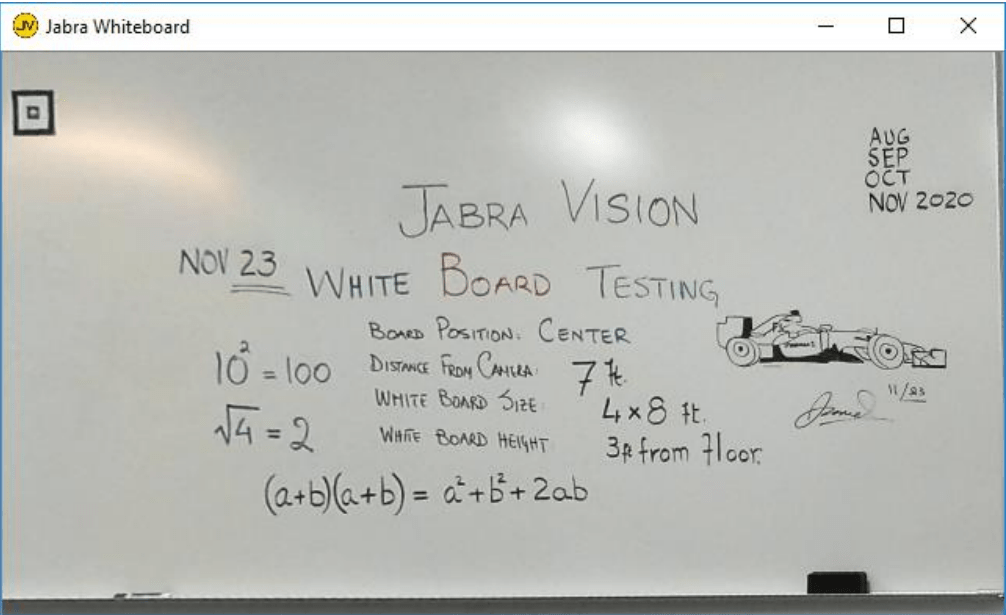 Jabra Whiteboard
AUG
SEP
OCT
NOV 2020
JABRA VISION
NOV 23
WHITE BOARD TESTING
BOARD POSITION: CENTER
DISTANCE FROM CAMERA: 7 ft.
WHITE BOARD SIZE: 4 x 8 ft.
WHITE BOARD HEIGHT 3ft from floor.
10² = 100
√4 = 2
(a+b)(a+b) = a²+b²+2ab
11/23